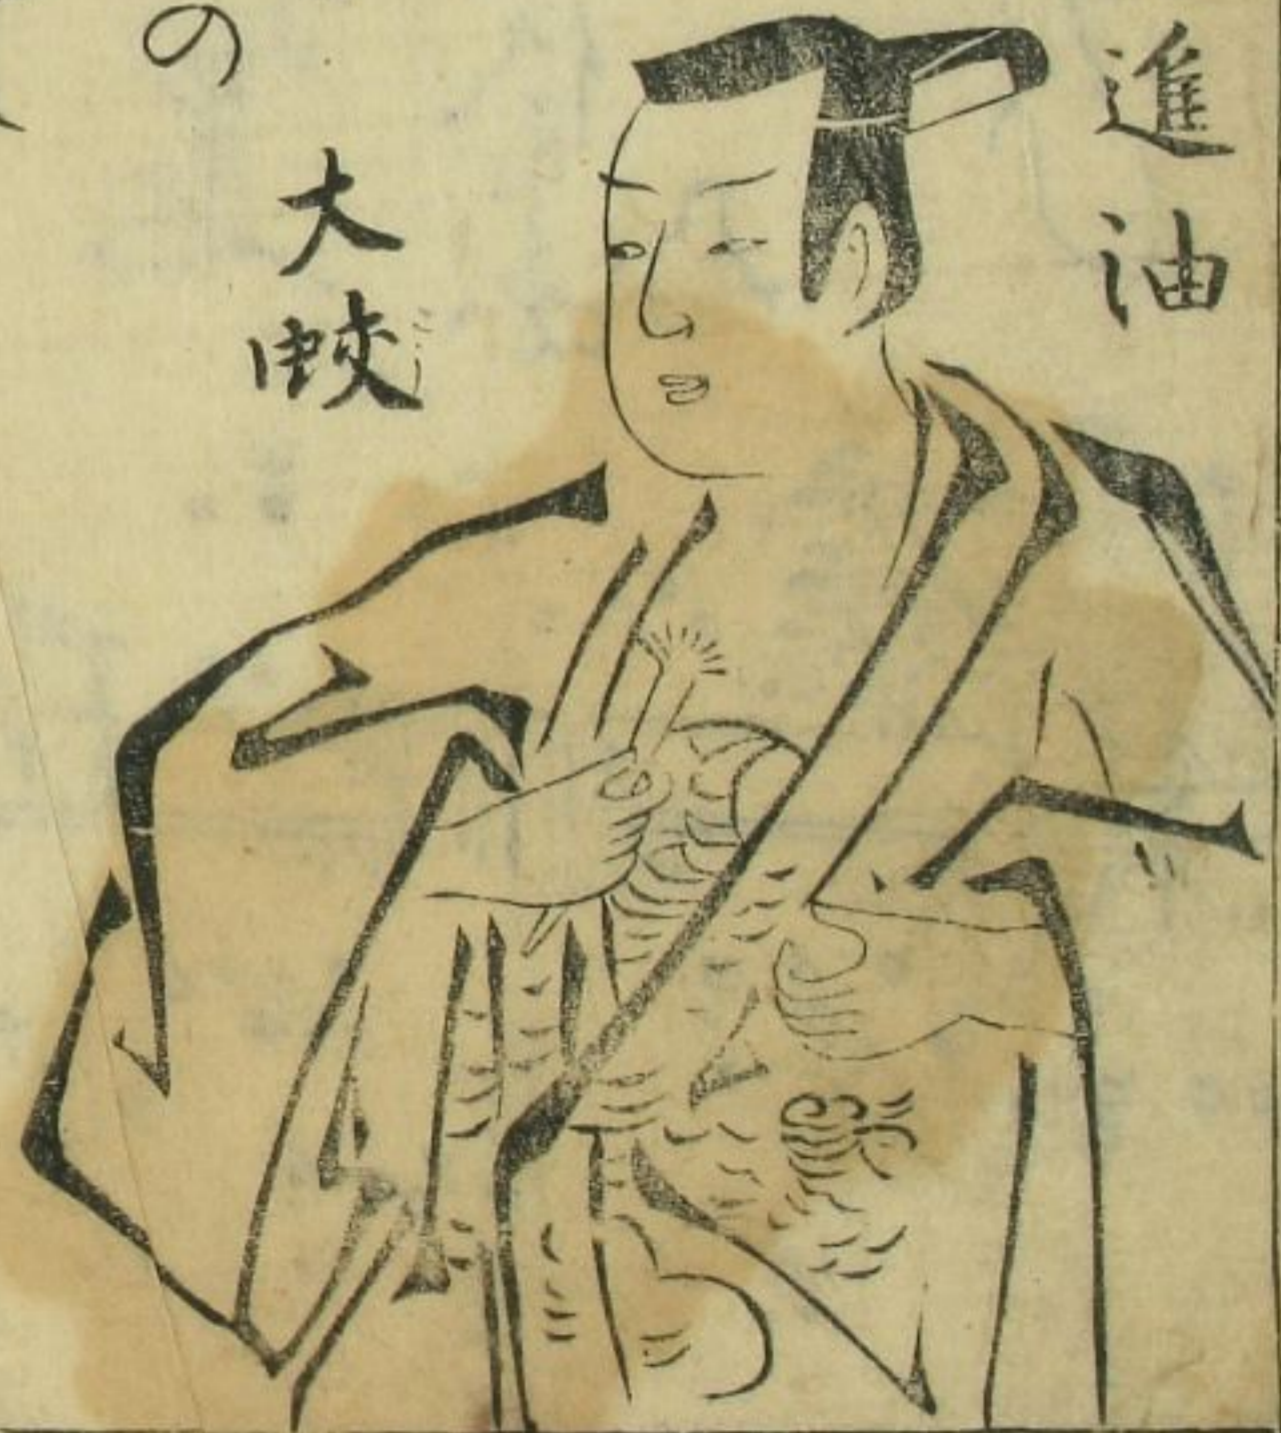 進油
大蛟
の